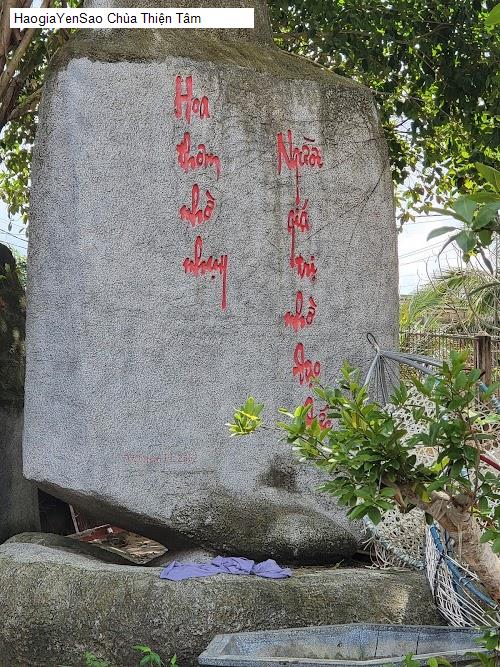 HaogiaYenSao Chùa Thiện Tâm
Hoa
thơm
nhờ
nhụy
Người
giá
trị
nhờ
đạo
đức